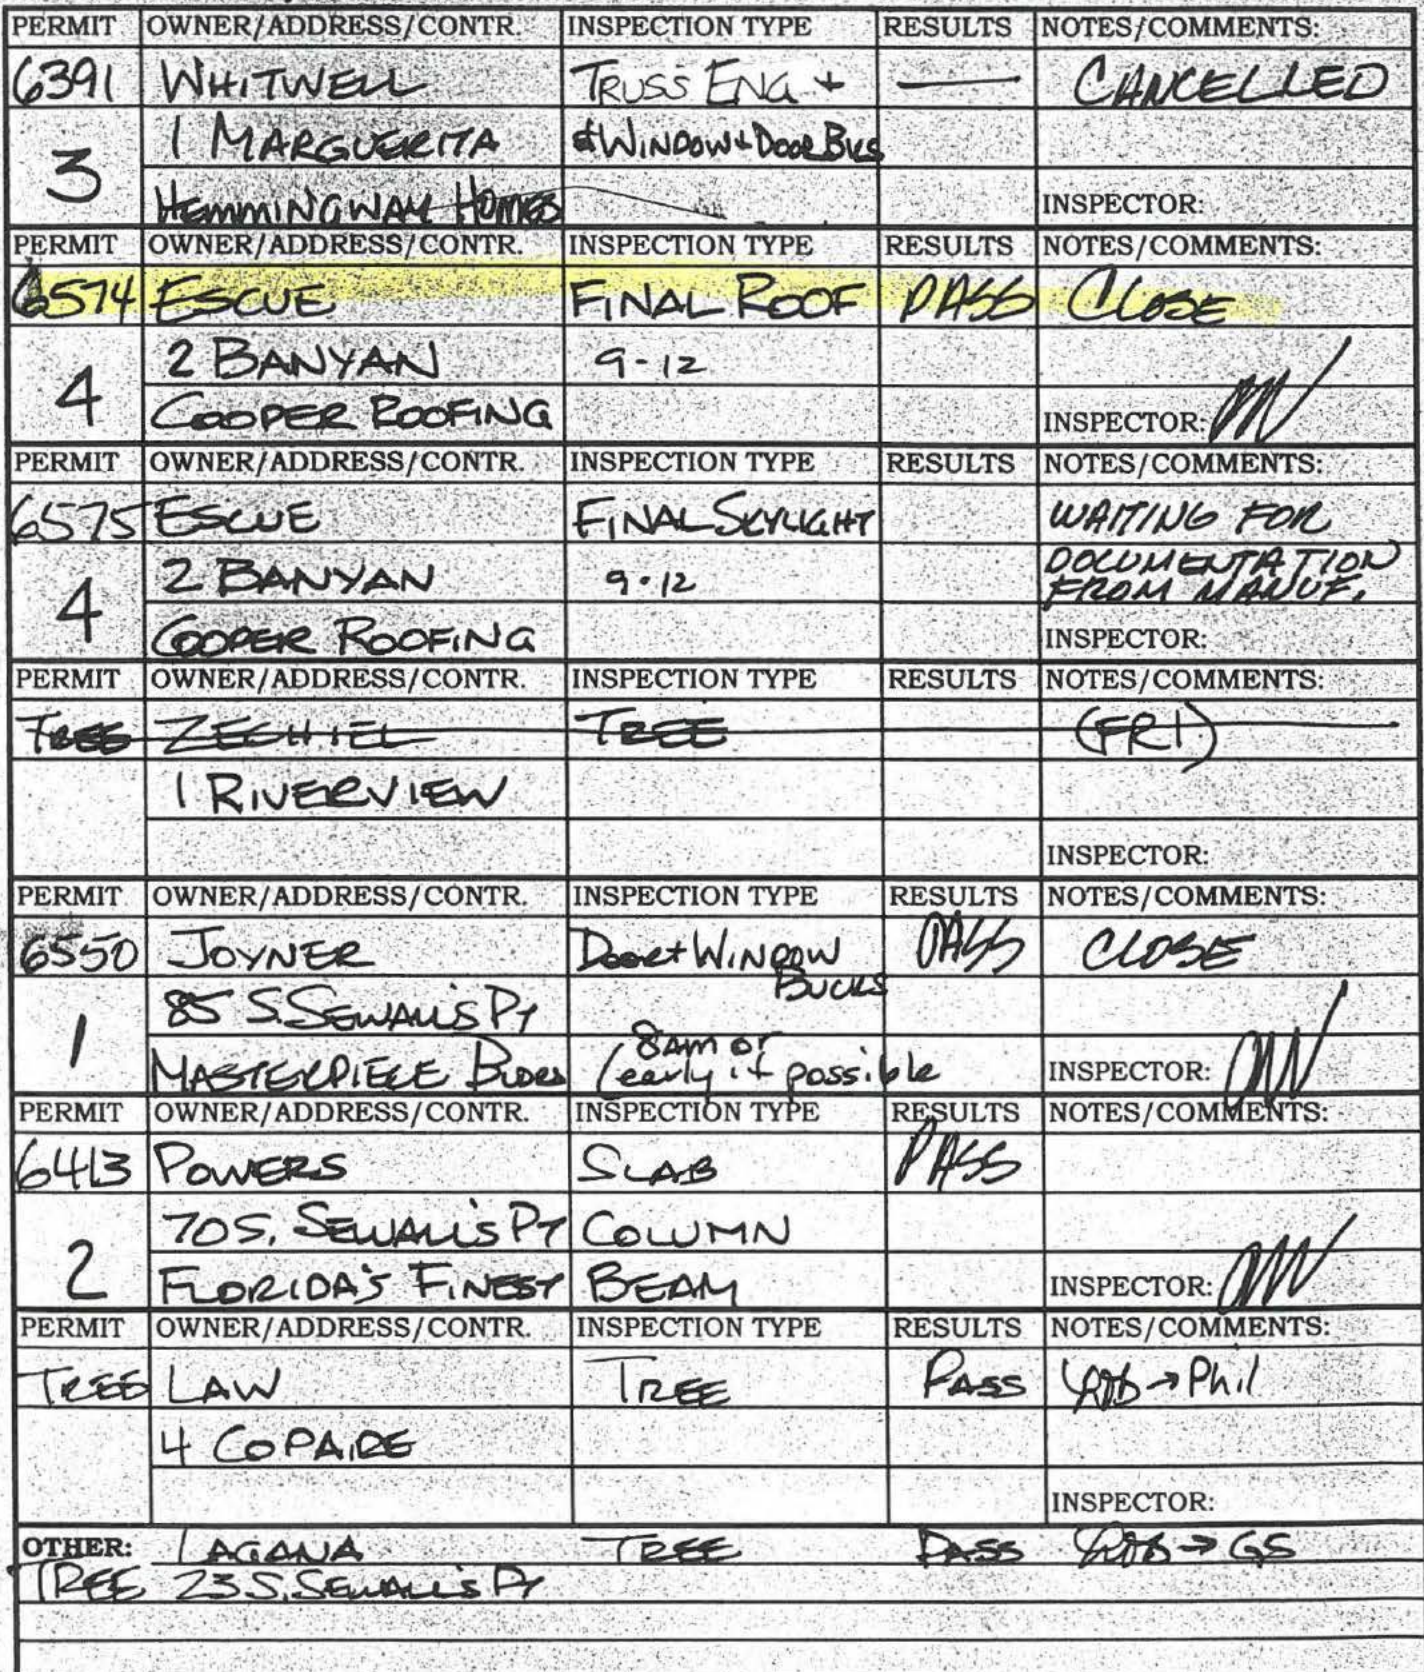 PERMIT OWNER/ADDRESS/CONTR. INSPECTION TYPE RESULTS NOTES/COMMENTS:
6391 WHITWELL TRUSS ENG + — CANCELLED
3 1 MARGUERITA & WINDOW + DOOR BKS
HEMMINGWAY HOMES INSPECTOR:
PERMIT OWNER/ADDRESS/CONTR. INSPECTION TYPE RESULTS NOTES/COMMENTS:
6574 ESCUE FINAL ROOF PASS CLOSE
4 2 BANYAN 9-12
COOPER ROOFING INSPECTOR:
PERMIT OWNER/ADDRESS/CONTR. INSPECTION TYPE RESULTS NOTES/COMMENTS:
6575 ESCUE FINAL SKYLIGHT WAITING FOR
4 2 BANYAN 9-12 DOCUMENTATION
FROM MANUF.
COOPER ROOFING INSPECTOR:
PERMIT OWNER/ADDRESS/CONTR. INSPECTION TYPE RESULTS NOTES/COMMENTS:
TREE ZECHIEL TREE (FRI)
1 RIVERVIEW
INSPECTOR:
PERMIT OWNER/ADDRESS/CONTR. INSPECTION TYPE RESULTS NOTES/COMMENTS:
6550 JOYNER DOOR + WINDOW PASS CLOSE
BUCKS
1 85 S. SEWALL'S PT
8am or
MASTERPIECE BLDRS (early if possible INSPECTOR:
PERMIT OWNER/ADDRESS/CONTR. INSPECTION TYPE RESULTS NOTES/COMMENTS:
6413 POWERS SLAB PASS
2 70 S. SEWALL'S PT COLUMN
FLORIDA'S FINEST BEAM INSPECTOR:
PERMIT OWNER/ADDRESS/CONTR. INSPECTION TYPE RESULTS NOTES/COMMENTS:
TREE LAW TREE PASS → Phil
4 COPAIRE
INSPECTOR:
OTHER: LAGANA TREE PASS → GS
TREE 23 S. SEWALL'S PT